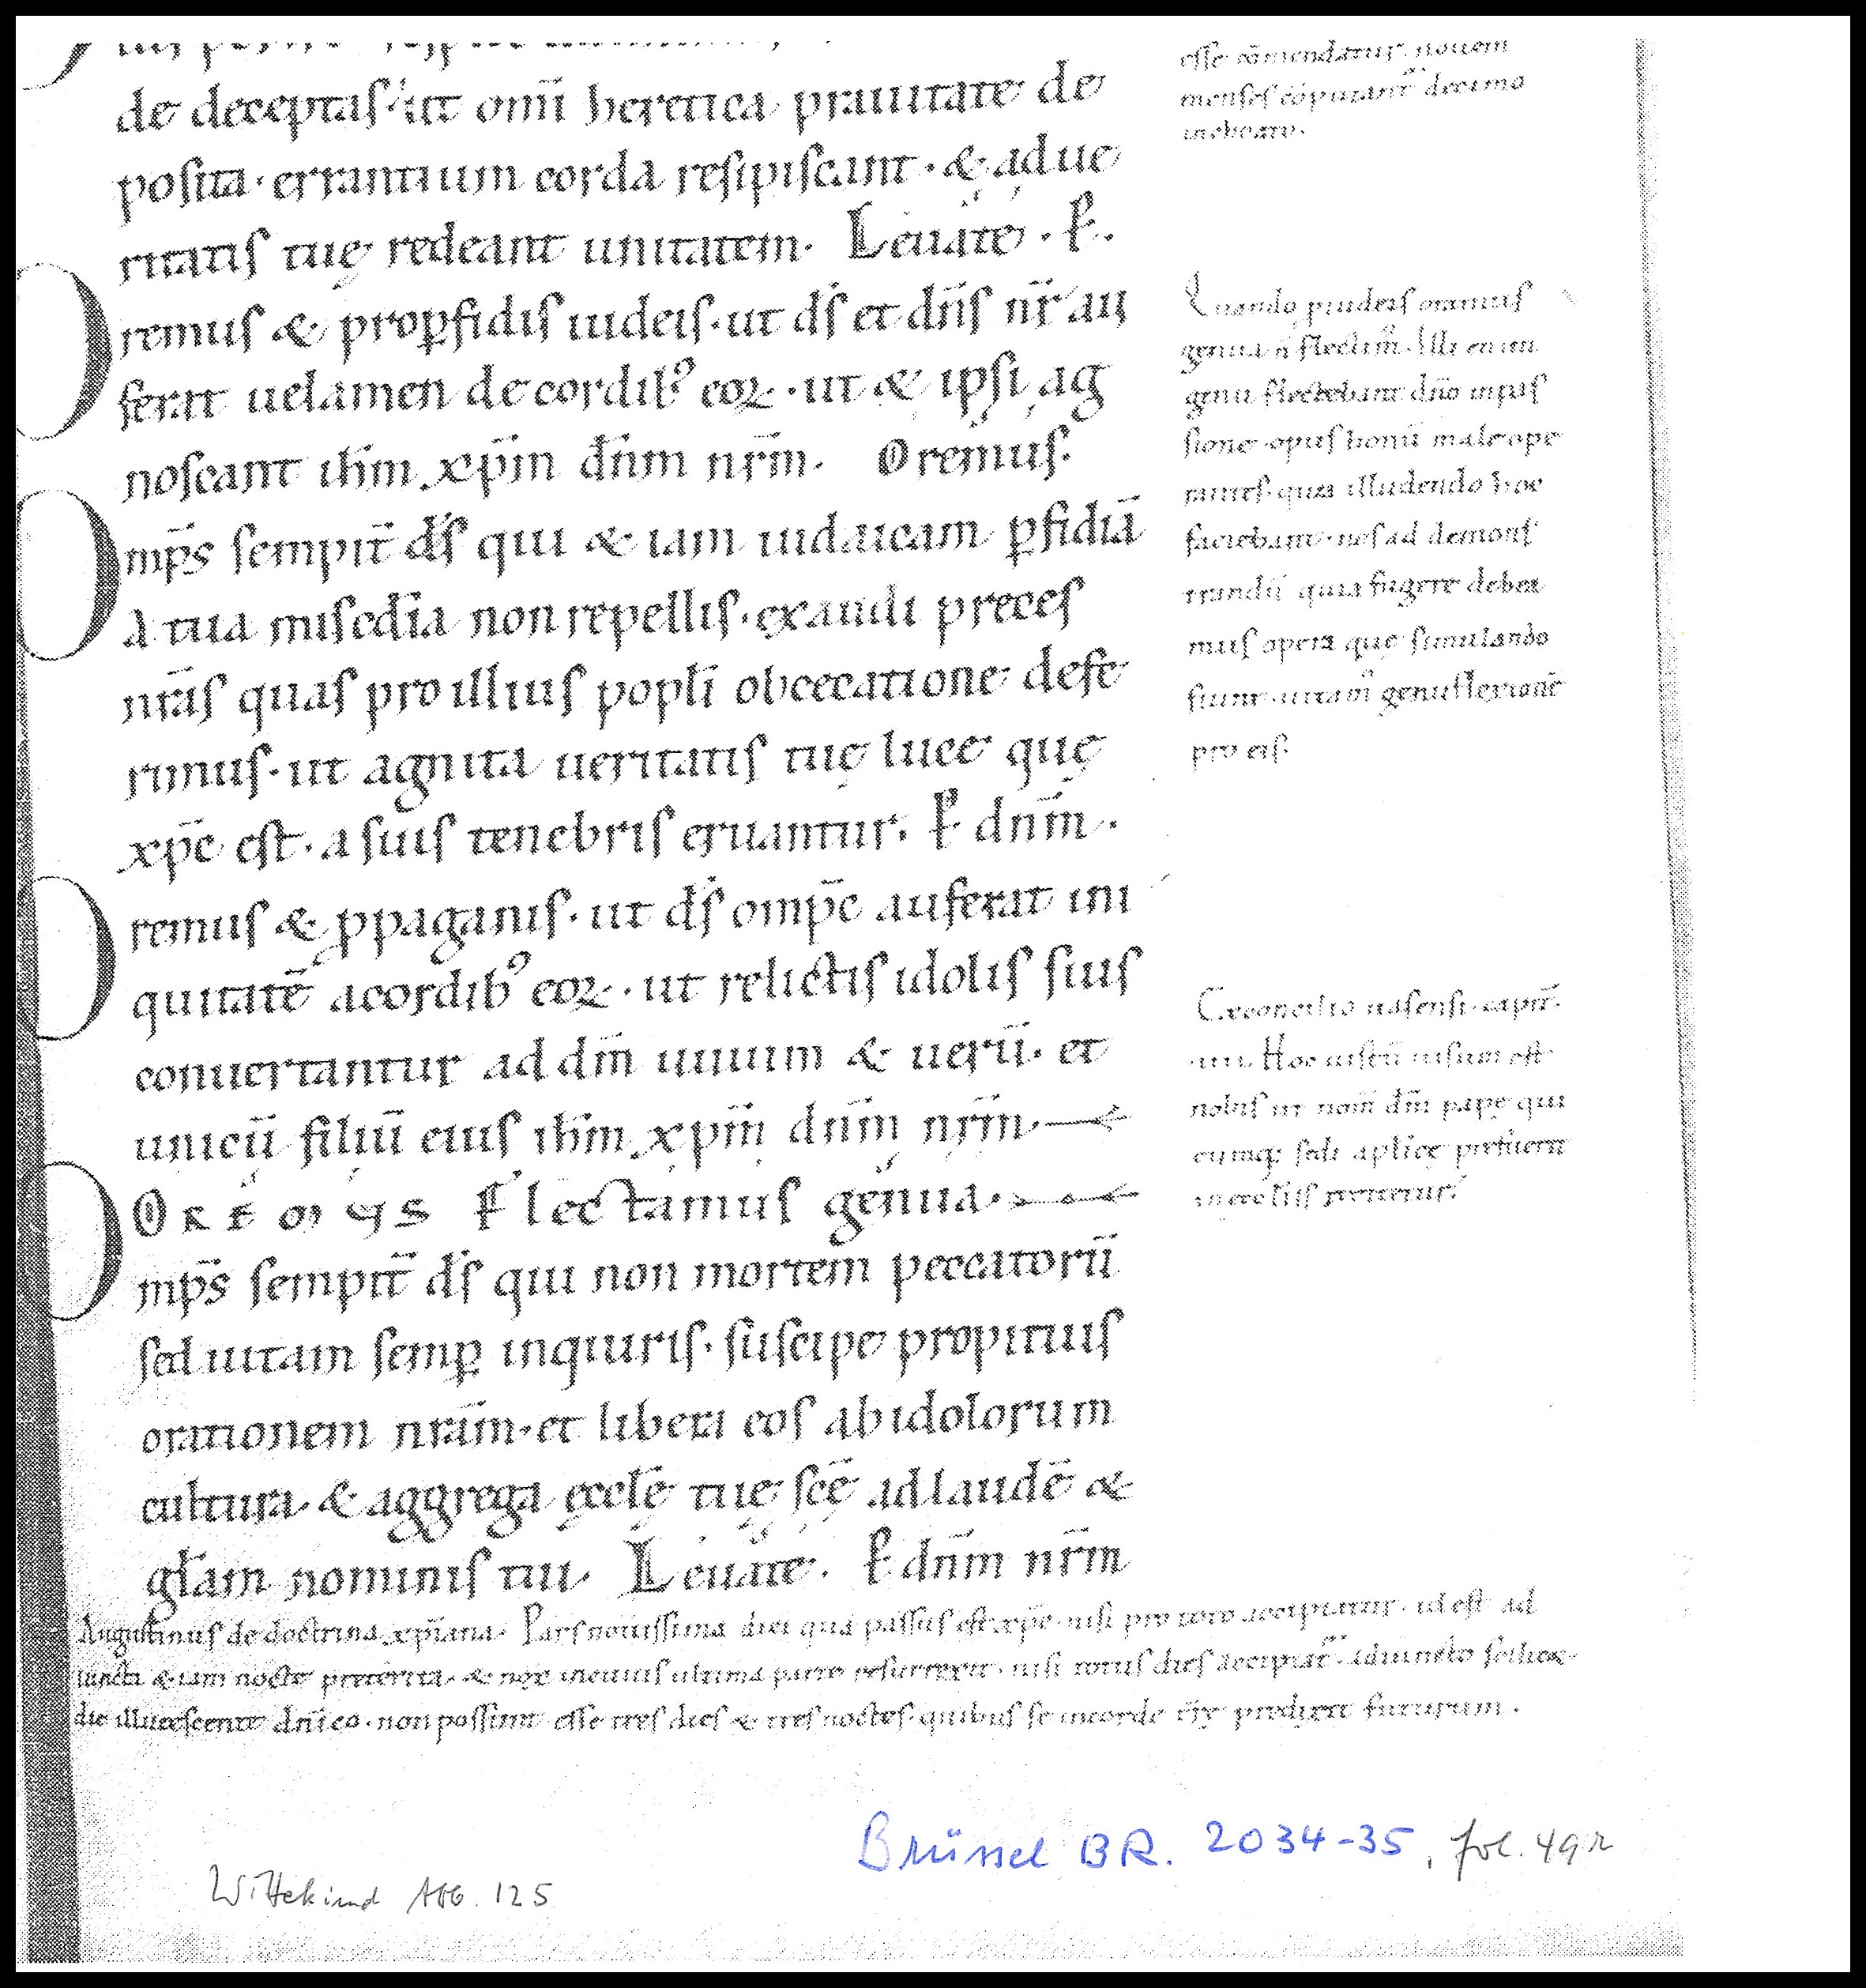 de deceptas· ut om̄i heretica prauitate de
posita· errantium corda resipiscant· & ad ue
ritatis tuę redeant unitatem· Leuate· P̶·
Oremus & prop̱fidis iudeis· ut d̄s et dn̄s nr̄ au
ferat uelamen de cordib⁹ eoꝝ· ut & ipsi ag
noscant ih̄m xp̄m dn̄m nr̄m. Oremus·
Omp̄s sempit̄ d̄s qui & iam iudaicam ꝑfidiā
a tua miscd̄ia non repellis· exaudi preces
nr̄as quas pro illius popl̄i obcecatione defe
rimus· ut agnita ueritatis tuę luce quę
xp̄c est· a suis tenebris eruantur. P̶ dn̄m.
Oremus & ꝓpaganis· ut d̄s omp̄c auferat ini
quitatē a cordib⁹ eoꝝ· ut relictis idolis suis
conuertantur ad dm̄ uiuum & uerū· et
unicū filiū eius ih̄m xp̄m dn̄m nr̄m·
OREMUS Flectamus genua·
Omp̄s sempit̄ d̄s qui non mortem peccatorū
sed uitam semꝑ inquiris· suscipe propitius
orationem nr̄am· et libera eos ab idolorum
cultura· & aggrega ęccl̄ę tuę sc̄ę ad laudē &
gl̄am nominis tui. Leuate· P̶ dn̄m nr̄m
esse cōmendatur· nouem
menses cōputant̄ decimo
inchoato.
Quando p iudeis oramus
genua n̄ flectim⁹. Illi enim
genu flectebant dn̄o in pas
sione· opus bonū male ope
rantes· quia illudendo hoc
faciebant· nos ad demons
trandū quia fugere debea
mus opera quę simulando
fiunt· uitam⁹ genuflexionē
pro eis·
Ex concilio uasensi· capit̄·
.iiii. Hoc iustū uisum est
nobis ut nom̄ dm̄ pape qui
cumq; sedi aplicę prefuerit
in eccl̄iis recitetur.
Augustinus de doctrina xp̄iana. Pars nouissima diei qua passus est xp̄c· nisi pro toto accipiatur· id est ad
iuncta etiam nocte preterita· & nox in cuius ultima parte resurrexit· nisi totus dies accipiat̄· adiuncto scilicet
die illucescente dn̄ico· non possunt esse tres dies & tres noctes· quibus se in corde t̄rę predixit futurum.
Brüssel BR. 2034-35, fol. 49r
Wittekind Abb. 125